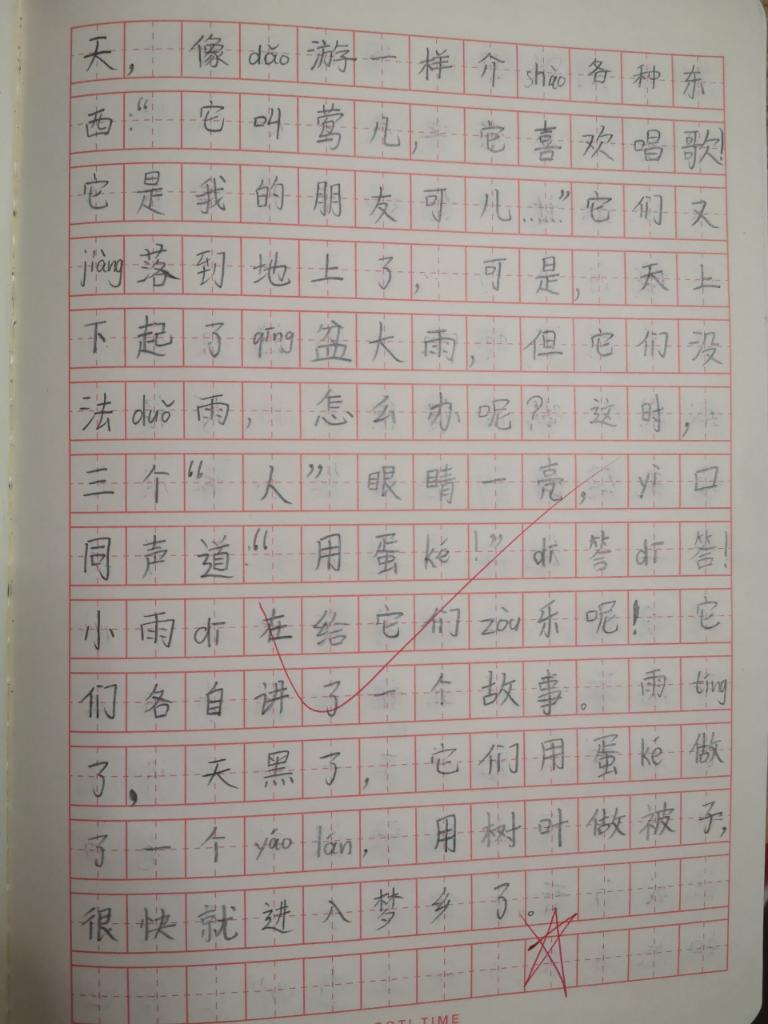 天，像dǎo游一样介shào各种东
西：“它叫莺凡，它喜欢唱歌！
它是我的朋友可儿……”它们又
jiàng落到地上了，可是，天上
下起了qīng盆大雨，但它们没
法duǒ雨，怎么办呢？这时，
三个“人”眼睛一亮，yì口
同声道：“用蛋ké！”dī答dī答！
小雨dī在给它们zòu乐呢！它
们各自讲了一个故事。雨tíng
了，天黑了，它们用蛋ké做
了一个yáo lán，用树叶做被子，
很快就进入梦乡了。
TI TIME